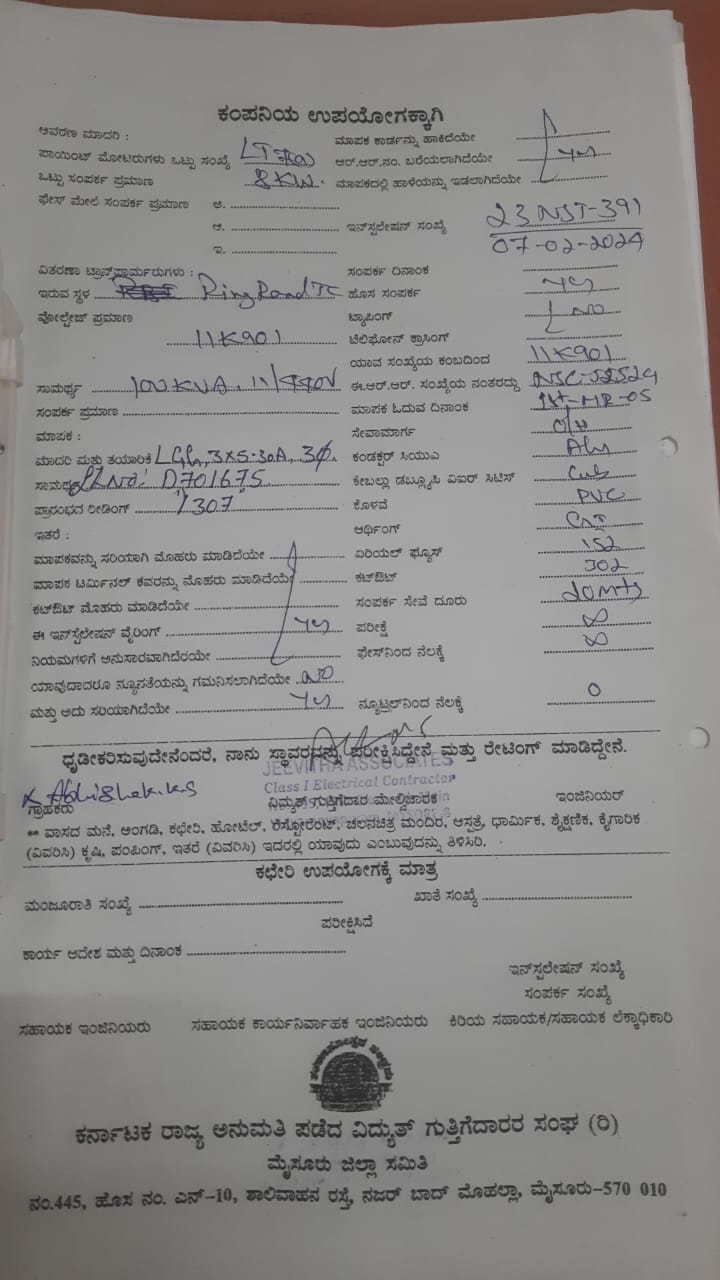 ಕಂಪನಿಯ ಉಪಯೋಗಕ್ಕಾಗಿ
ಆವರಣ ಮಾದರಿ : ಮಾಪಕ ಕಾರ್ಡನ್ನು ಹಾಕಿದೆಯೇ
ಪಾಯಿಂಟ್ ಮೋಟರುಗಳು ಒಟ್ಟು ಸಂಖ್ಯೆ LT ಆರ್.ಆರ್.ನಂ. ಬರೆಯಲಾಗಿದೆಯೇ Yes
ಒಟ್ಟು ಸಂಪರ್ಕ ಪ್ರಮಾಣ 8 KW. ಮಾಪಕದಲ್ಲಿ ಹಾಳೆಯನ್ನು ಇಡಲಾಗಿದೆಯೇ
ಫೇಸ್ ಮೇಲೆ ಸಂಪರ್ಕ ಪ್ರಮಾಣ ಅ.
ಆ. ಇನ್‌ಸ್ಟಲೇಷನ್ ಸಂಖ್ಯೆ 23 NST-391
ಇ. 07-02-2024
ವಿತರಣಾ ಟ್ರಾನ್ಸ್‌ಫಾರ್ಮರುಗಳು : ಸಂಪರ್ಕ ದಿನಾಂಕ
ಇರುವ ಸ್ಥಳ Ring Road TC ಹೊಸ ಸಂಪರ್ಕ Yes
ವೋಲ್ಟೇಜ್ ಪ್ರಮಾಣ ಟ್ಯಾಪಿಂಗ್ NO
11K901 ಟೆಲಿಫೋನ್ ಕ್ರಾಸಿಂಗ್
ಯಾವ ಸಂಖ್ಯೆಯ ಕಂಬದಿಂದ 11K901
ಸಾಮರ್ಥ್ಯ 100 KVA, 11/440V ಈ.ಆರ್.ಆರ್. ಸಂಖ್ಯೆಯ ನಂತರದ್ದು
ಸಂಪರ್ಕ ಪ್ರಮಾಣ ಮಾಪಕ ಓದುವ ದಿನಾಂಕ 1st-MR-05
ಮಾಪಕ : ಸೇವಾಮಾರ್ಗ O/H
ಮಾದರಿ ಮತ್ತು ತಯಾರಿಕೆ L&G, 3X5-30A, 3Ø. ಕಂಡಕ್ಟರ್ ಸಿಯುಎ
ಸಾಮರ್ಥ್ಯ Sl No: D701675 ಕೇಬಲ್ಲು ಡಬ್ಲ್ಯೂಪಿ ಏಐರ್ ಸಿಟಿಸ್
ಪ್ರಾರಂಭದ ರೀಡಿಂಗ್ 307 ಕೊಳವೆ PVC
ಇತರೆ : ಆರ್ಥಿಂಗ್
ಮಾಪಕವನ್ನು ಸರಿಯಾಗಿ ಮೊಹರು ಮಾಡಿದೆಯೇ ಏರಿಯಲ್ ಫ್ಯೂಸ್ 152
ಮಾಪಕ ಟರ್ಮಿನಲ್ ಕವರನ್ನು ಮೊಹರು ಮಾಡಿದೆಯೆ ಕಟ್‌ಔಟ್ 302
ಕಟ್‌ಔಟ್ ಮೊಹರು ಮಾಡಿದೆಯೇ ಸಂಪರ್ಕ ಸೇವೆ ದೂರು 20Mts
ಈ ಇನ್‌ಸ್ಟಲೇಷನ್ ವೈರಿಂಗ್ Yes ಪರೀಕ್ಷೆ ∞
ನಿಯಮಗಳಿಗೆ ಅನುಸಾರವಾಗಿದೆರೆಯೇ ಫೇಸ್‌ನಿಂದ ನೆಲಕ್ಕೆ ∞
ಯಾವುದಾದರೂ ನ್ಯೂನತೆಯನ್ನು ಗಮನಿಸಲಾಗಿದೆಯೇ NO
ಮತ್ತು ಅದು ಸರಿಯಾಗಿದೆಯೇ Yes ನ್ಯೂಟ್ರಲ್‌ನಿಂದ ನೆಲಕ್ಕೆ 0
ಧೃಡೀಕರಿಸುವುದೇನೆಂದರೆ, ನಾನು ಸ್ಥಾವರವನ್ನು ಪರೀಕ್ಷಿಸಿದ್ದೇನೆ ಮತ್ತು ರೇಟಿಂಗ್ ಮಾಡಿದ್ದೇನೆ.
JEEVITHA ASSOCIATES
Class I Electrical Contractor
Abhishek.k.s
ಗ್ರಾಹಕರು ವಿದ್ಯುತ್ ಗುತ್ತಿಗೆದಾರ ಮೇಲ್ವಿಚಾರಕ ಇಂಜಿನಿಯರ್
** ವಾಸದ ಮನೆ, ಅಂಗಡಿ, ಕಛೇರಿ, ಹೋಟೆಲ್, ರೆಸ್ಟೋರೆಂಟ್, ಚಲನಚಿತ್ರ ಮಂದಿರ, ಆಸ್ಪತ್ರೆ, ಧಾರ್ಮಿಕ, ಶೈಕ್ಷಣಿಕ, ಕೈಗಾರಿಕೆ
(ವಿವರಿಸಿ) ಕೃಷಿ, ಪಂಪಿಂಗ್, ಇತರೆ (ವಿವರಿಸಿ) ಇದರಲ್ಲಿ ಯಾವುದು ಎಂಬುವುದನ್ನು ತಿಳಿಸಿರಿ.
ಕಛೇರಿ ಉಪಯೋಗಕ್ಕೆ ಮಾತ್ರ
ಮಂಜೂರಾತಿ ಸಂಖ್ಯೆ ಖಾತೆ ಸಂಖ್ಯೆ
ಪರೀಕ್ಷಿಸಿದೆ
ಕಾರ್ಯ ಆದೇಶ ಮತ್ತು ದಿನಾಂಕ
ಇನ್‌ಸ್ಟಲೇಷನ್ ಸಂಖ್ಯೆ
ಸಂಪರ್ಕ ಸಂಖ್ಯೆ
ಸಹಾಯಕ ಇಂಜಿನಿಯರು ಸಹಾಯಕ ಕಾರ್ಯನಿರ್ವಾಹಕ ಇಂಜಿನಿಯರು ಕಿರಿಯ ಸಹಾಯಕ/ಸಹಾಯಕ ಲೆಕ್ಕಾಧಿಕಾರಿ
ಕರ್ನಾಟಕ ರಾಜ್ಯ ಅನುಮತಿ ಪಡೆದ ವಿದ್ಯುತ್ ಗುತ್ತಿಗೆದಾರರ ಸಂಘ (ರಿ)
ಮೈಸೂರು ಜಿಲ್ಲಾ ಸಮಿತಿ
ನಂ.445, ಹೊಸ ನಂ. ಎನ್-10, ಶಾಲಿವಾಹನ ರಸ್ತೆ, ನಜರ್ ಬಾದ್ ಮೊಹಲ್ಲಾ, ಮೈಸೂರು-570 010